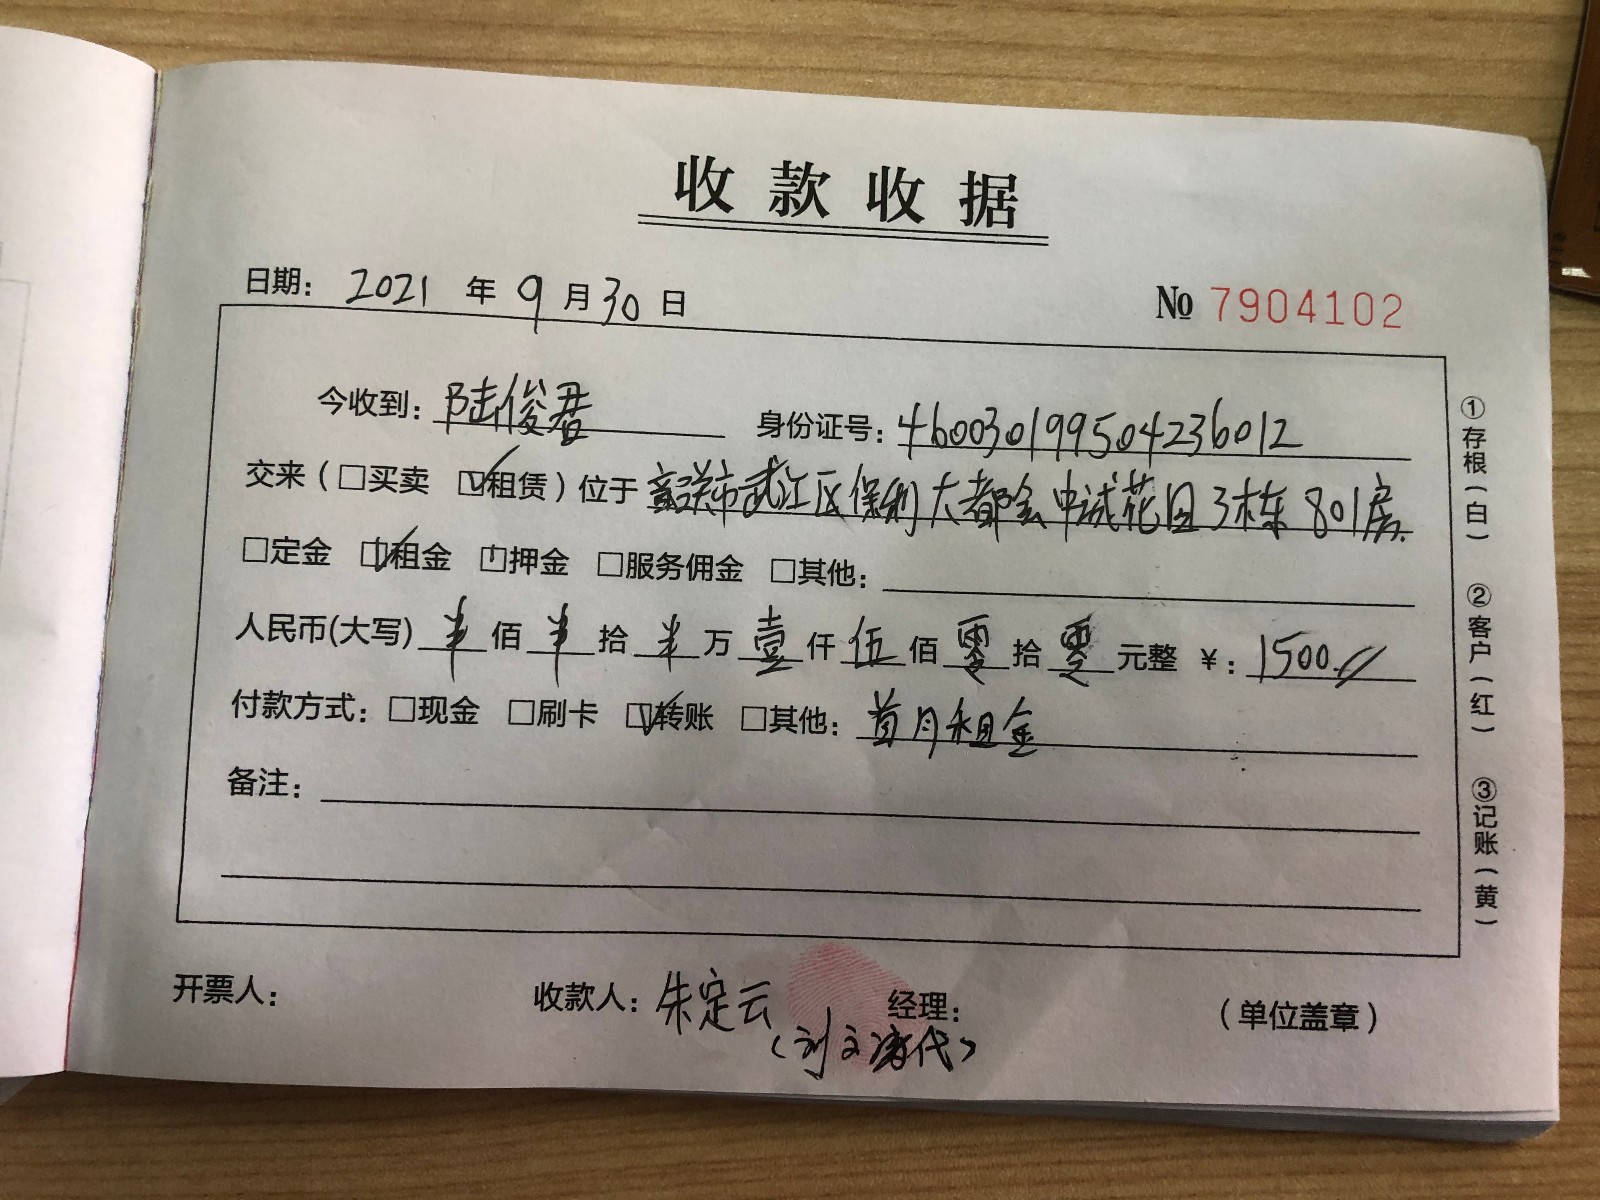 收款收据
日期: 2021 年 9 月 30 日 № 7904102
今收到: 陆俊君 身份证号: 460030199504236012
交来(□买卖 ☑租赁)位于 韶关市武江区保利大都会中诚花园3栋801房
□定金 ☑租金 □押金 □服务佣金 □其他:
人民币(大写) 佰 拾 万 壹 仟 伍 佰 零 拾 零 元整 ¥: 1500.
付款方式: □现金 □刷卡 ☑转账 □其他: 首月租金
备注:
开票人: 收款人: 朱定云 经理: (单位盖章)
(刘文 代)
①存根(白) ②客户(红) ③记账(黄)